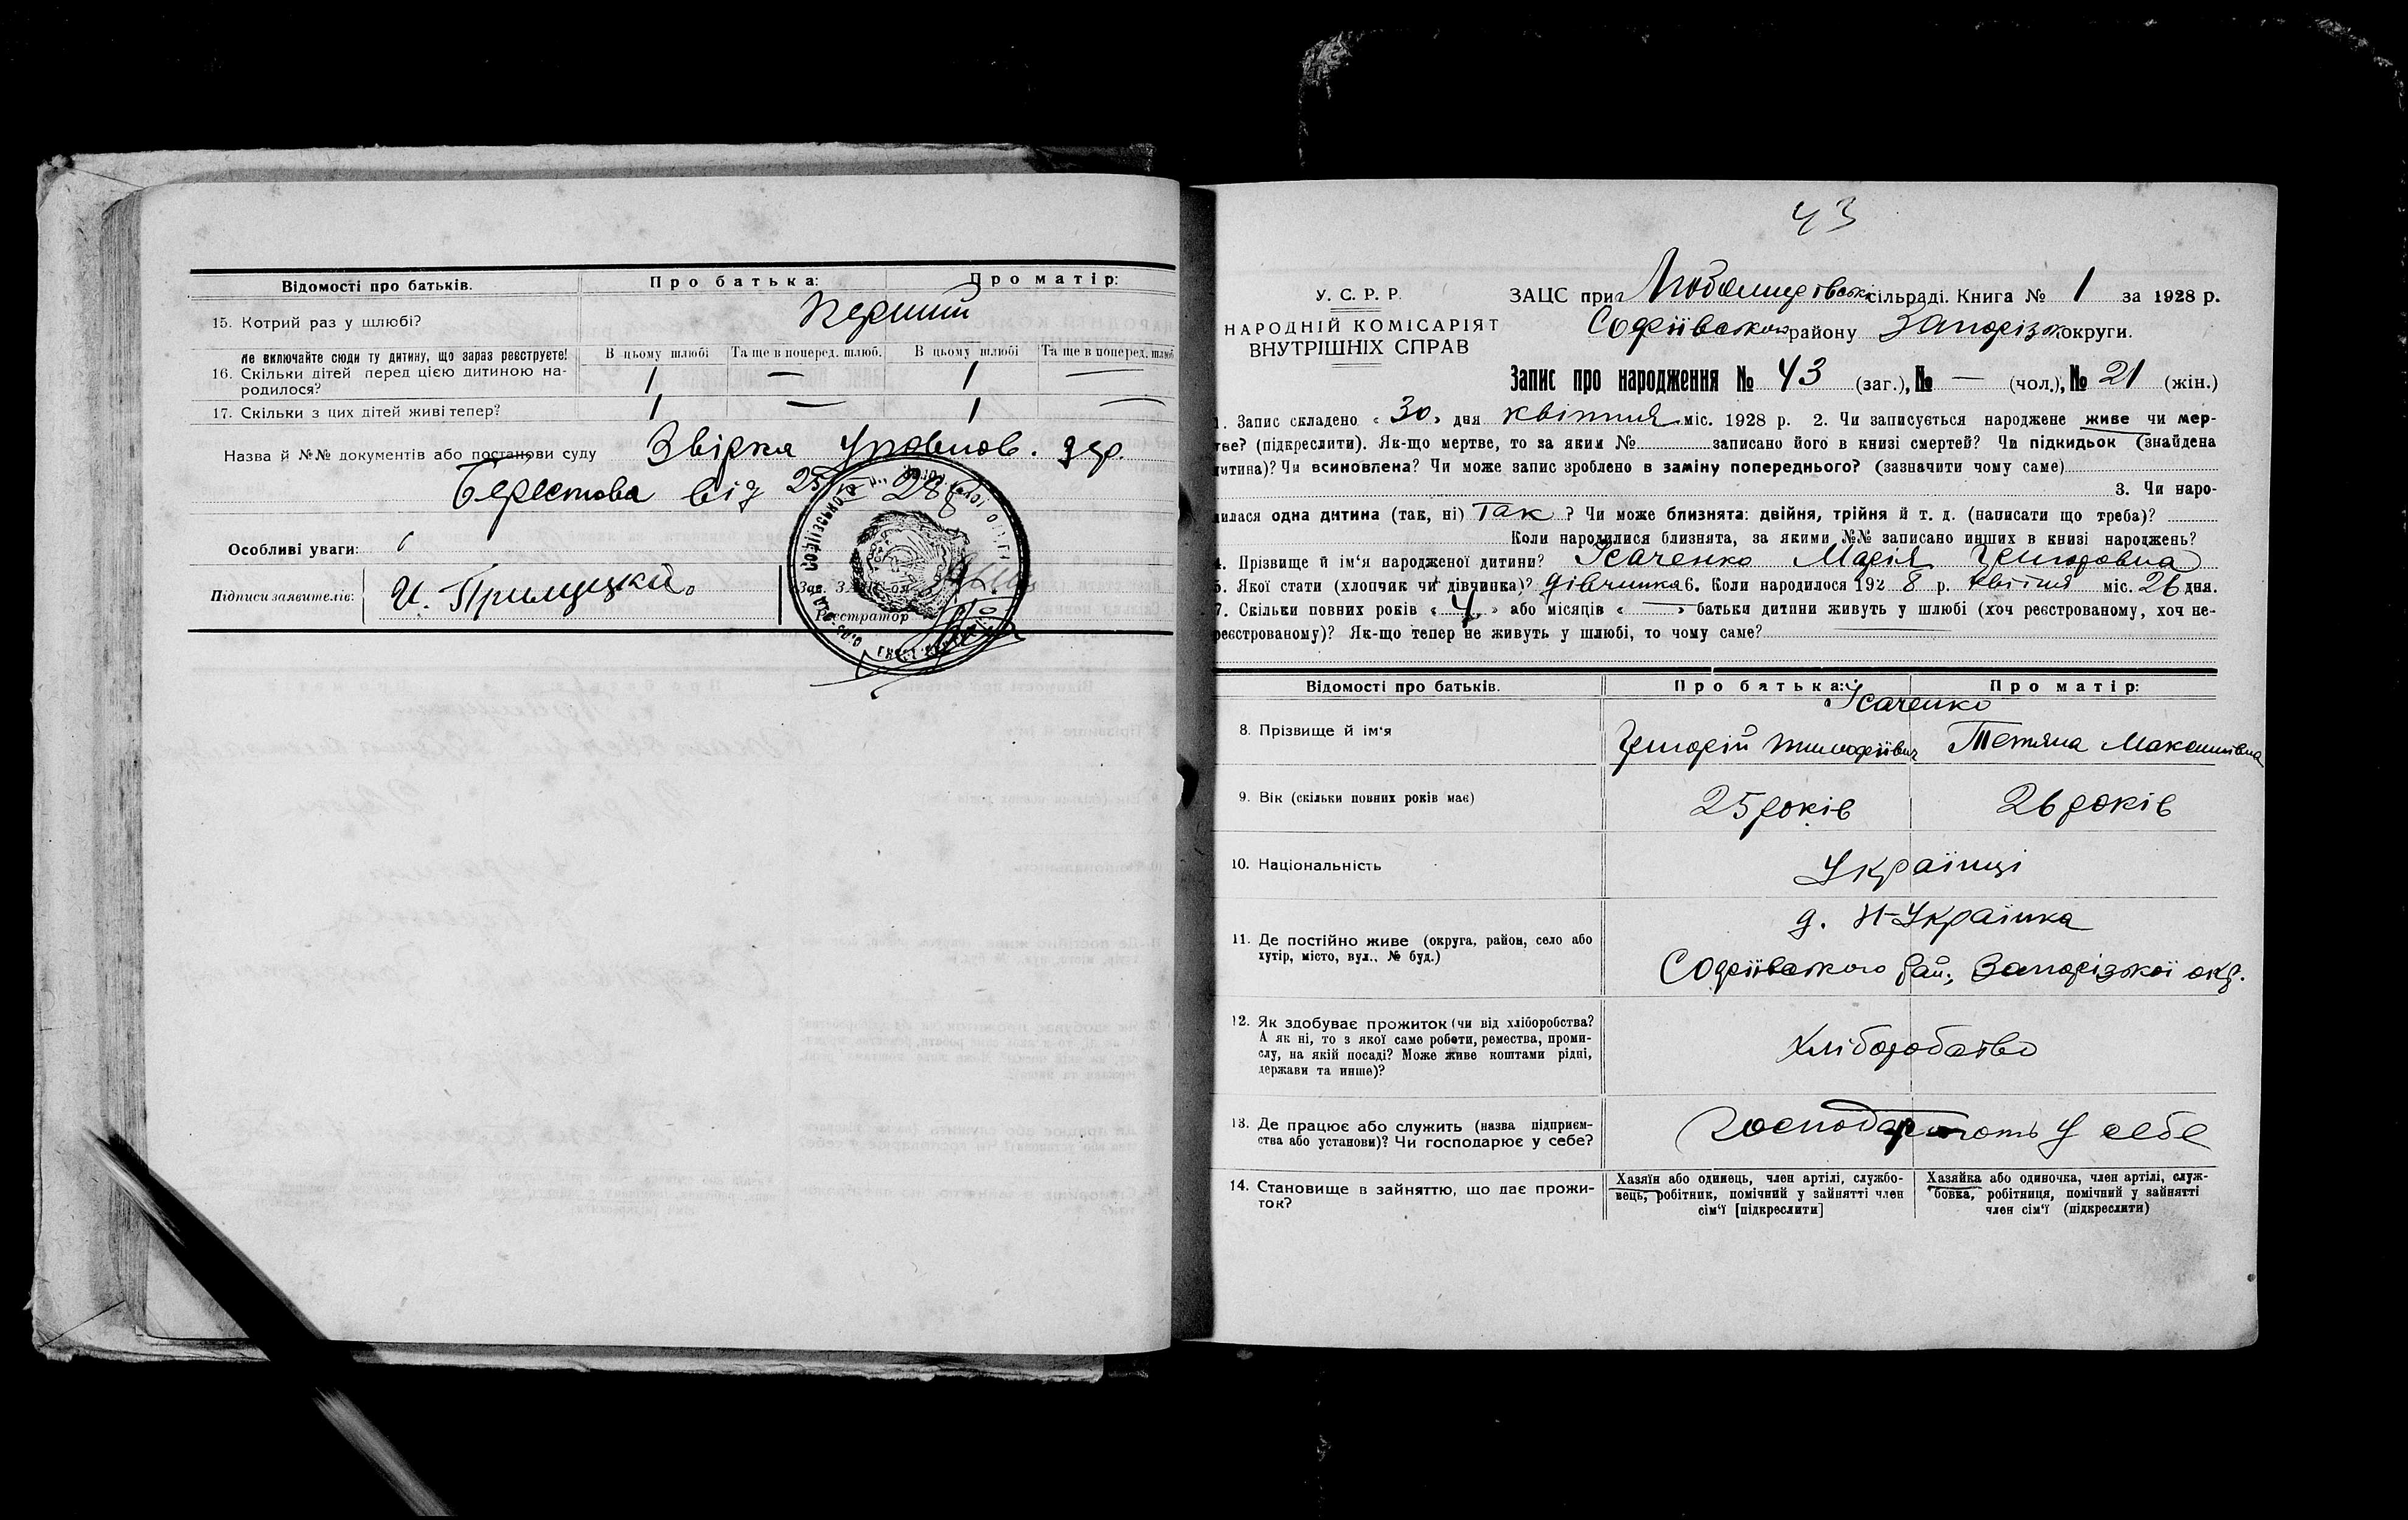 Відомості про батьків. Про батька: Про матір:
15. Котрий раз у шлюбі? Перший
не включайте сюди ту дитину, що зараз реєструєте!
В цьому шлюбі Та ще в поперед. шлюб. В цьому шлюбі Та ще в поперед. шлюб
16. Скільки дітей перед цією дитиною на-
родилося? 1 — 1 —
17. Скільки з цих дітей живі тепер? 1 — 1 —
Назва й №№ документів або постанови суду Звірка Уповнов.
Берестова від 25
Особливі уваги:
Підписи заявителів: И. Прилуцкий
Зав. ЗАЦС'ом
Реєстратор
43
У. С. Р. Р.
НАРОДНІЙ КОМІСАРІЯТ
ВНУТРІШНІХ СПРАВ
ЗАЦС при Любомирівській сільраді. Книга № 1 за 1928 р.
Софіївського району Запорізької округи.
Запис про народження № 43 (заг.), № — (чол.), № 21 (жін.)
1. Запис складено « 30 » дня квітня міс. 1928 р. 2. Чи записується народжене живе чи мер-
тве? (підкреслити). Як-що мертве, то за яким № записано його в книзі смертей? Чи підкидьок (знайдена
дитина)? Чи всиновлена? Чи може запис зроблено в заміну попереднього? (зазначити чому саме)
3. Чи наро-
дилася одна дитина (так, ні) Так ? Чи може близнята: двійня, трійня й т. д. (написати що треба)?
Коли народилися близнята, за якими №№ записано инших в книзі народжень?
4. Прізвище й ім'я народженої дитини? Ісаченко Марія Григоровна
5. Якої стати (хлопчик чи дівчинка)? дівчинка 6. Коли народилося 192 8 р. квітня міс. 26 дня.
7. Скільки повних років « 4 » або місяців « — » батьки дитини живуть у шлюбі (хоч реєстрованому, хоч не-
реєстрованому)? Як-що тепер не живуть у шлюбі, то чому саме? —
Відомості про батьків. Про батька: Про матір:
Ісаченко
8. Прізвище й ім'я Григорій Тимофіївич Тетяна Максимівна
9. Вік (скільки повних років має) 25 років 26 років
10. Національність Українці
11. Де постійно живе (округа, район, село або
хутір, місто, вул., № буд.)
д. Н-Українка
Софіївського рай, Запорізької окр.
12. Як здобуває прожиток (чи від хліборобства?
А як ні, то з якої саме роботи, ремества, проми-
слу, на якій посаді? Може живе коштами рідні,
держави та инше)?
Хліборобство
13. Де працює або служить (назва підприєм-
ства або установи)? Чи господарює у себе?
господарюють у себе
14. Становище в зайняттю, що дає прожи-
ток?
Хазяїн або одинець, член артілі, службо-
вець, робітник, помічний у зайнятті член
сім'ї [підкреслити]
Хазяйка або одиночка, член артілі, служ-
бовка, робітниця, помічний у зайнятті
член сім'ї (підкреслити)